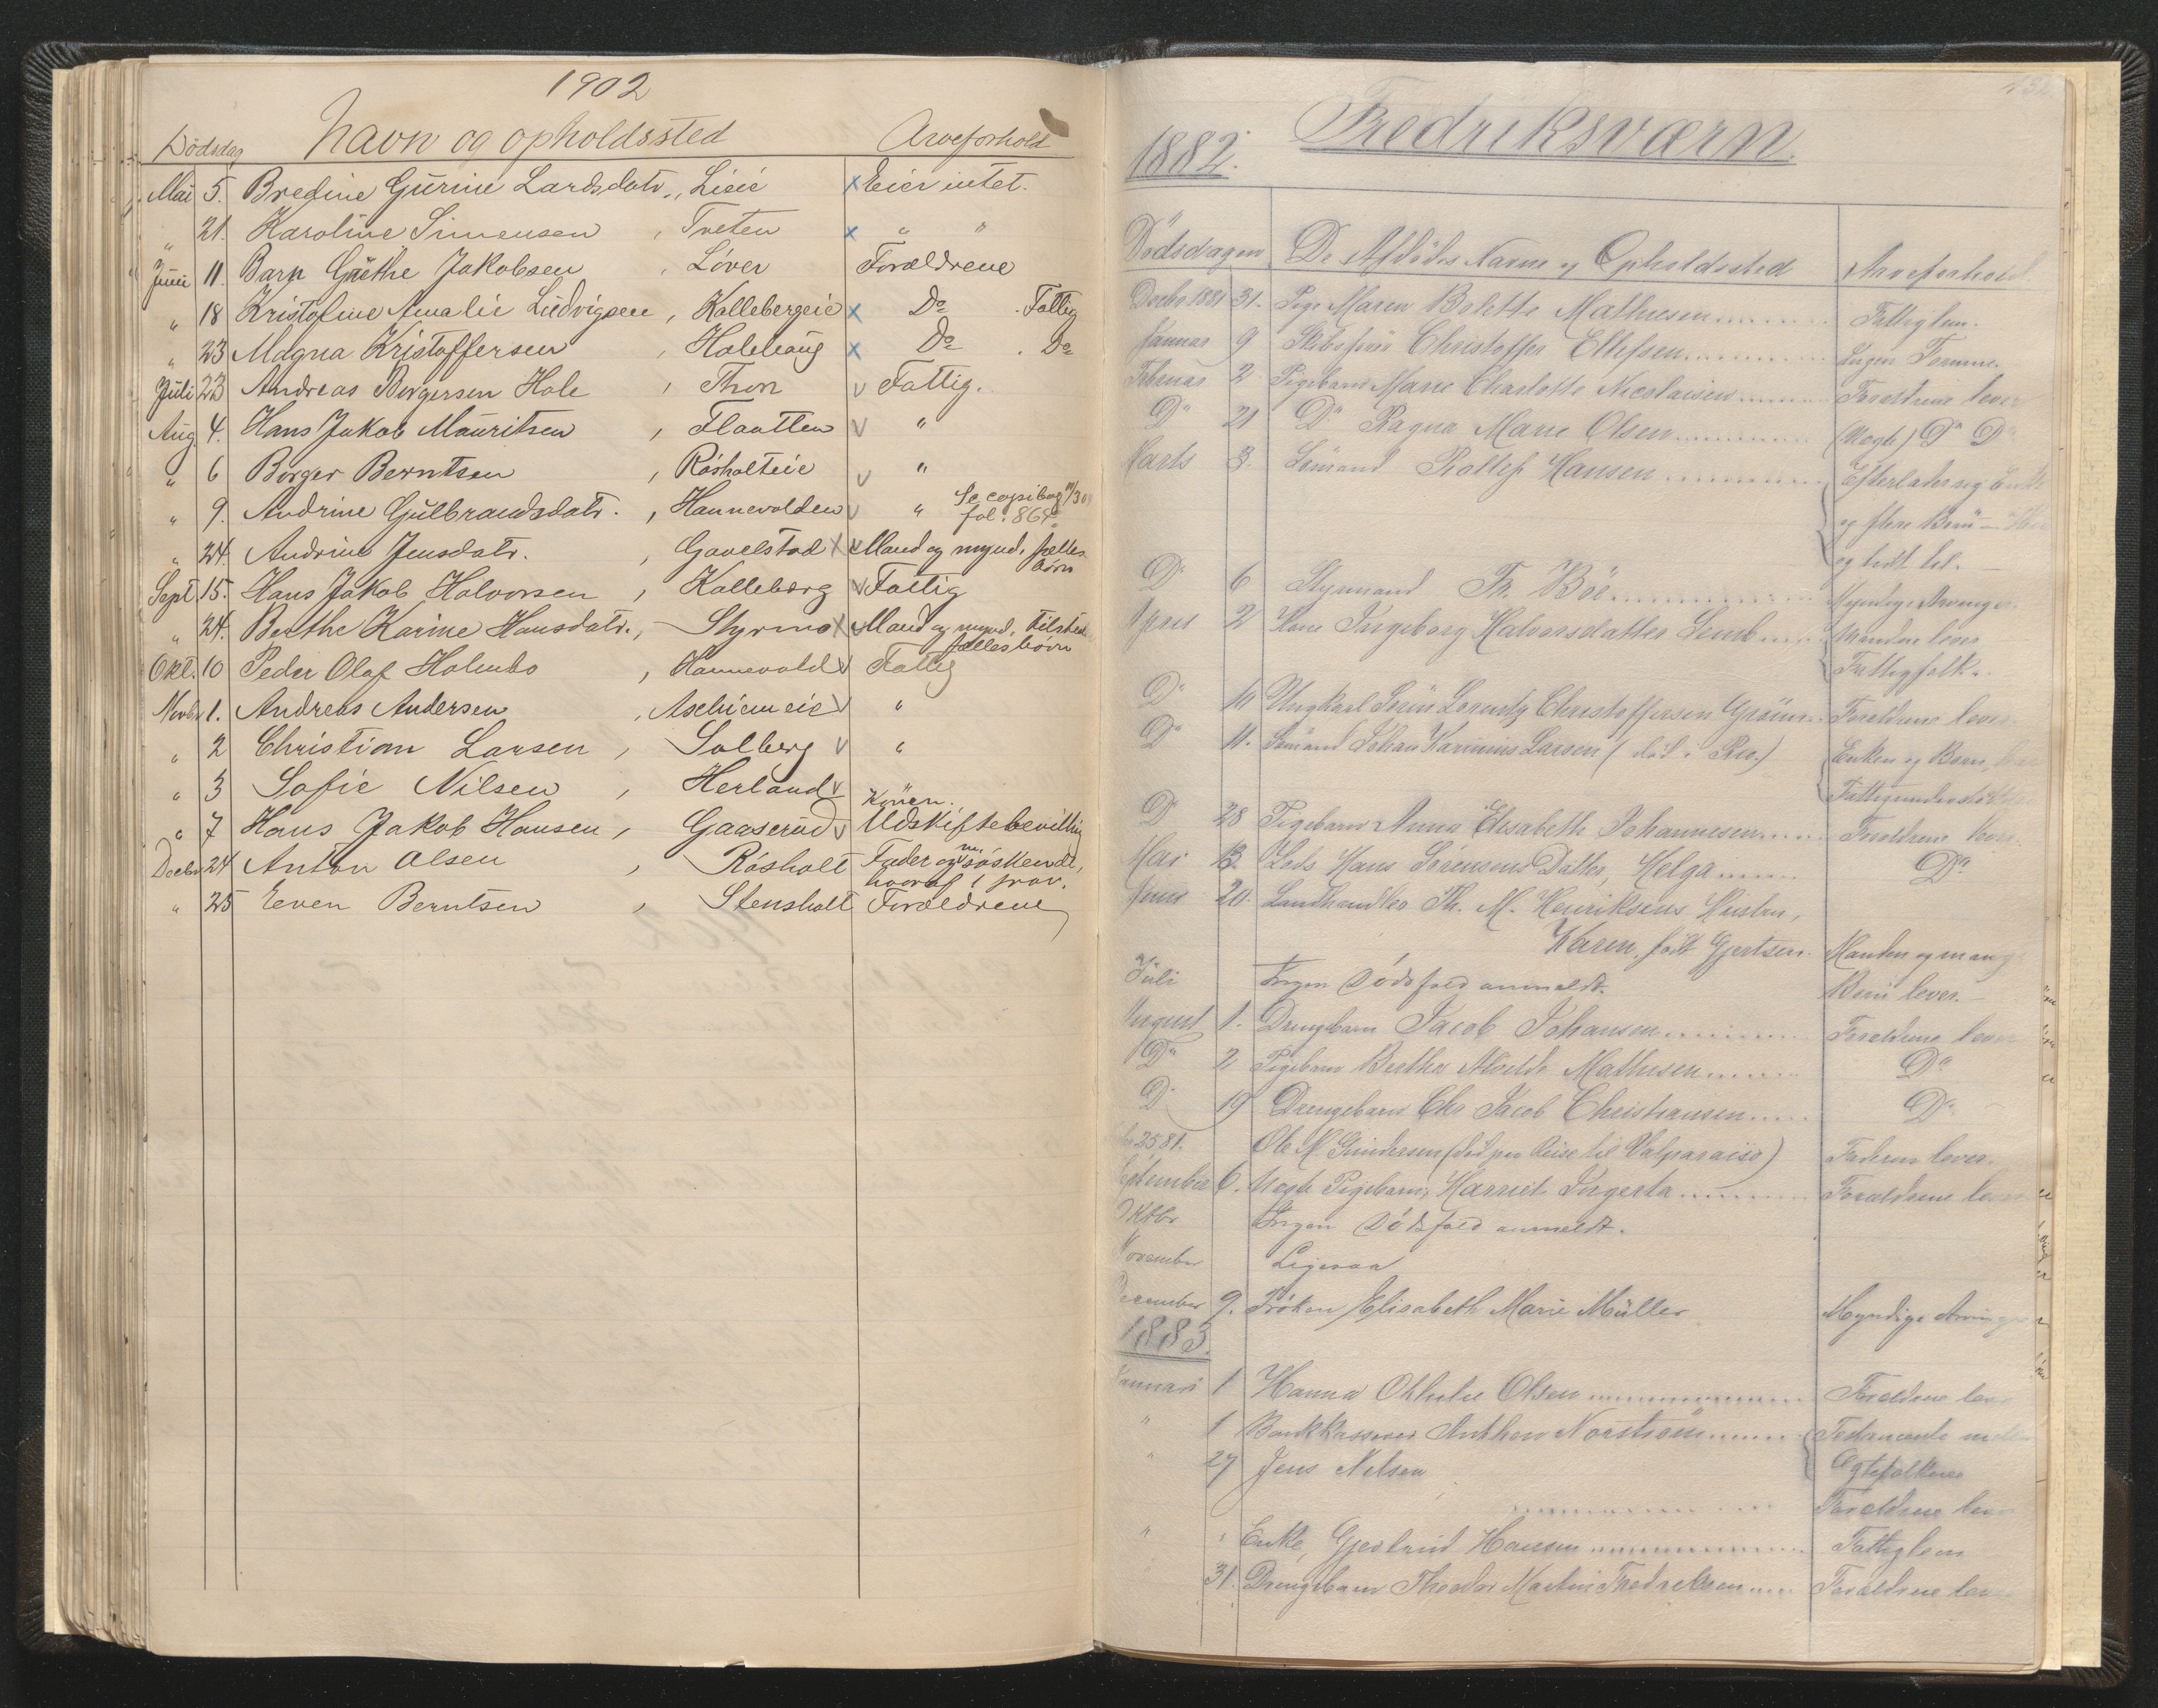 1902
Dödsdag Navn og opholdssted Arveforhold
Mai 5. Bredine Gurine Larsdatr., Lieie x Eier intet.
" 21. Karoline Simensen , Tveten x " "
Juni 11. Barn Gusthe Jakobsen , Löver Forældrene
" 18 Kristofine Amalie Ludvigsen , Kallebergeie x Do . Fattig
" 23 Magna Kristoffersen , Holehaug x Do . Do
Juli 23 Andreas Borgersen Hole , Thon v Fattig.
Aug. 4. Hans Jakob Mauritsen , Flaatten v "
" 6 Borger Berntsen , Rösholteie v "
" 9. Andrine Gulbrandsdatr. , Hannevolden v " Se copibog
fol. 864
" 24. Andrine Jensdatr. , Gavelstad x v Mand og mynd. fælles
börn
Sept. 15. Hans Jakob Halvorsen , Kalleberg v Fattig
" 24. Berthe Karine Hansdatr., Styrmo x v Mand og mynd. tilstede
fællesbörn
Okt. 10 Peder Olaf Holmbo , Hannevold v Fattig
Novbr 1. Andreas Andersen , Aschiemeie v "
" 2 Christian Larsen , Solberg v "
" 3 Sofie Nilsen , Herland v
Konen.
" 7 Hans Jakob Hansen , Gaaserud v Udskiftebevilling
Decbr 24 Anton Olsen , Rösholt Fader og m. söskende,
hvoraf 1 frav.
" 25 Even Berntsen , Stensholt Forældrene
1882. Fredriksværn.
Dödsdagen De Afdödes Navne og Opholdssted Arveforhold
Decbr 1881 31. Pige Maren Bolette Mathisen Fattiglem.
Januar 9 Skibsförer Christoffer Ellefsen Ingen Formue.
Februar 2 Pigebarn Marie Charlotte Nicolaisen Forældrene lever
Do 21 Do Ragna Marie Olsen (Uægte) Do Do
Marts 3. Sömand Rollef Hansen Efterlader sig Enke
og flere Börn
og lidt til.
Do 6 Styrmand Th. Böe Myndige Arvinger
April 2 Kone Ingeborg Halvorsdatter Manden lever
Fattigfolk.
Do 10 Ungkarl Sörin Lorentz Christoffersen Forældrene lever
Do 11. Sömand Johan Karinius Larsen (död i Rio.) Enken og Börn
Fattigunderstöttelse
Do 28 Pigebarn Anna Elisabeth Johannesen Forældrene lever
Mai 13. Lods Hans Sörensens Datter, Helga Do
Juni 20. Landhandler Th. M. Henriksens Hustru,
Karen, födt Gjertsen. Manden og mange
Juli Ingen Dödsfald anmeldt. Börn lever.
August 1. Drengebarn Jacob Johansen Forældrene lever
Do 2 Pigebarn Berthe Alvilde Mathisen Do
Do 19 Drengebarn Chr. Jacob Christiansen Do
25 81. Ole M. Gundersen (död paa Reise til Valparaiso) Faderen lever.
September 6. Uægte Pigebarn, Harriet Ingerta Forældrene lever
Oktbr Ingen Dödsfald anmeldt.
November Ligesaa
December 9. Fröken Elisabeth Marie Müller Myndige Arvinger
1883.
Januari 1 Hanna Othilie Olsen Forældrene lever
" 1 Bankkasserer Anthon Norström Testamente mellem
" 27 Jens Nilsen Ægtefolkene
Forældrene lever
" " Enke, Gjertrud Hansen Fattiglem
31. Drengebarn Theodor Martin Fredriksen Forældrene lever